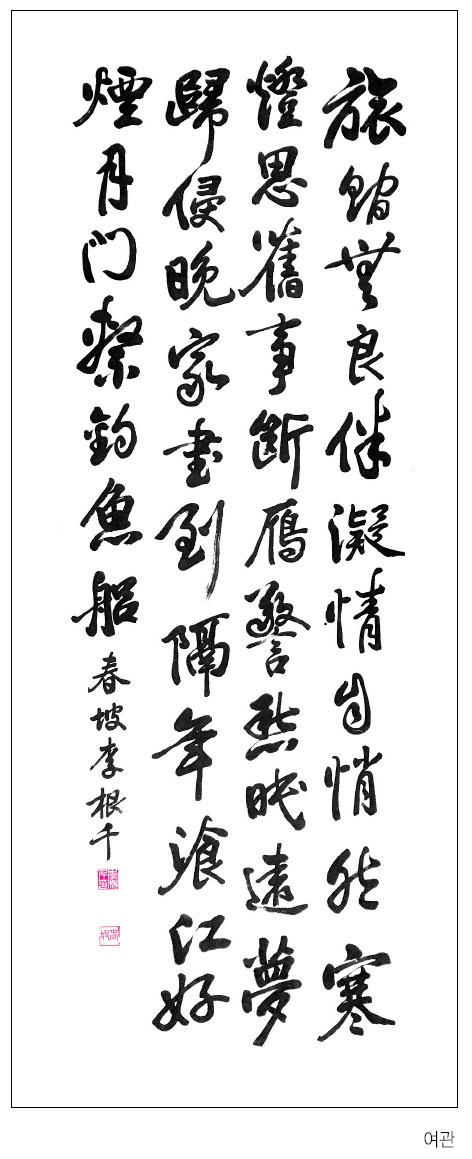 旅館無良伴凝情自悄然寒
燈思舊事斷鴈警愁眠遠夢
歸侵晚家書到隔年滄江好
煙月門繫釣魚船 春坡李根千
여관